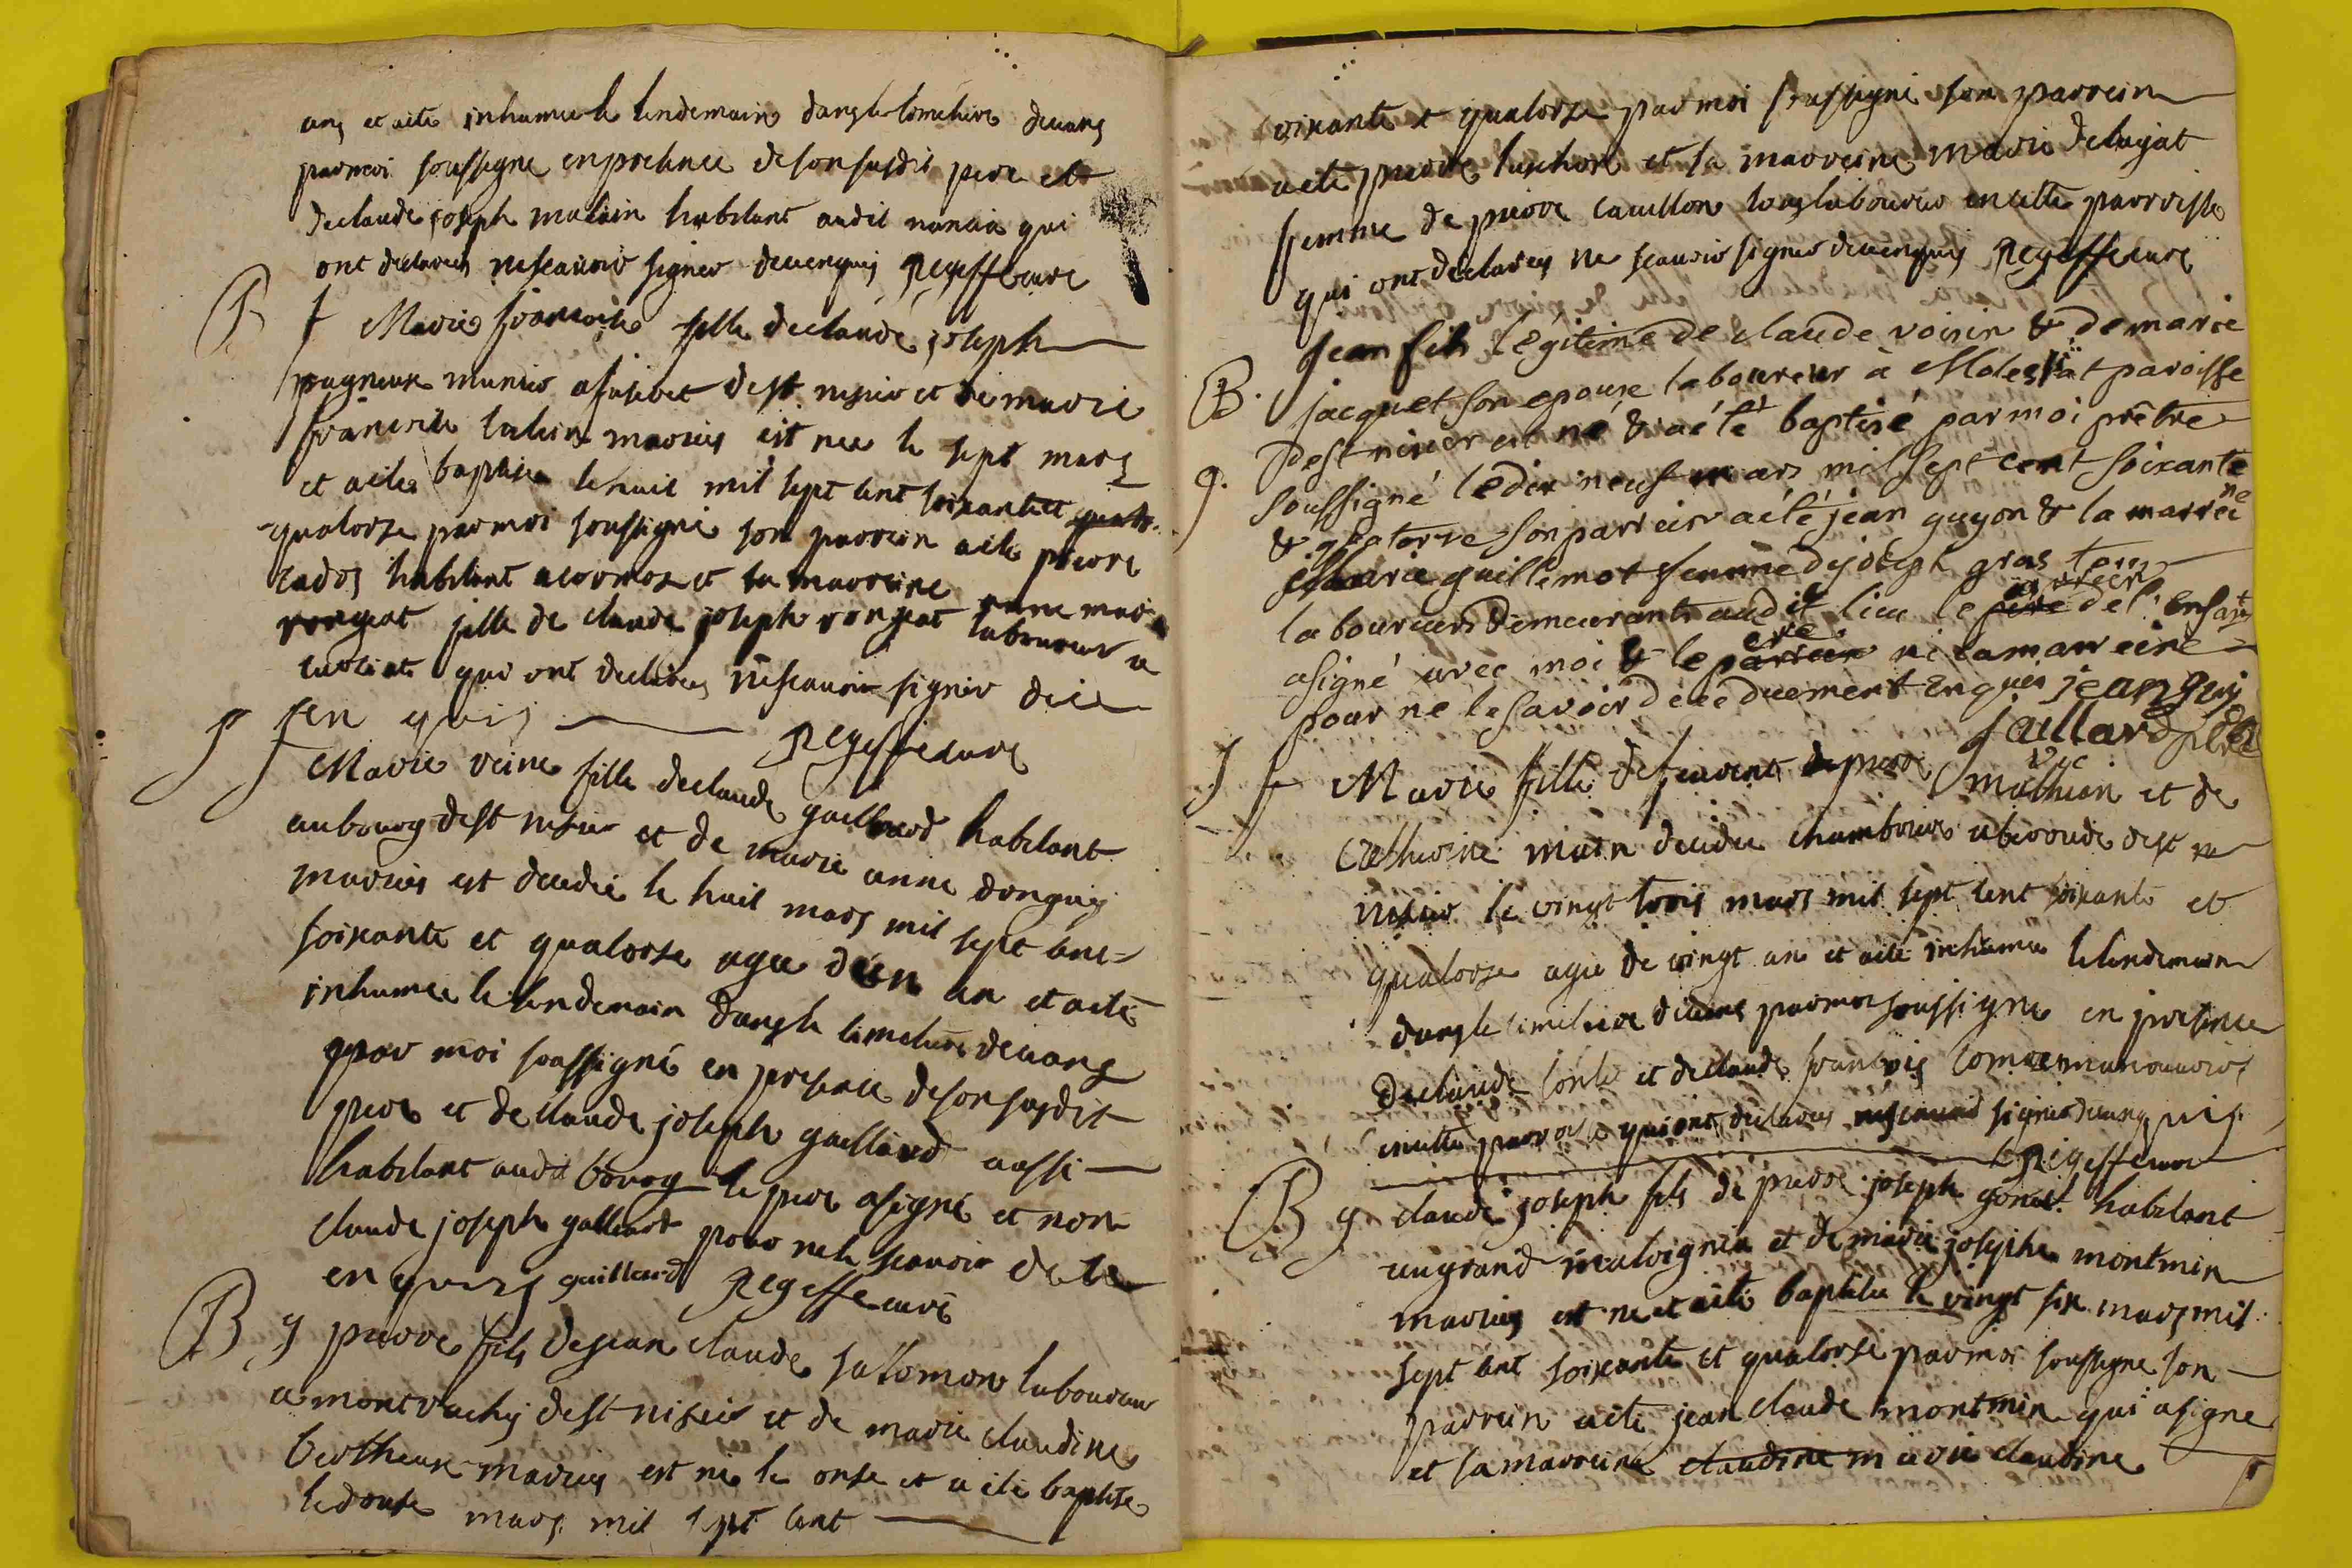 ans et a ete inhumee le lendemain dans le cimetiere devans
par moi soussigne en presence de son susdit pere et
de claude joseph mathin habitant audit nancia qui
ont declarés ne scavoir signer de ce enquis Regeffe curé
B f Marie francoise fille de claude joseph
pagneux munier a st nisier et de marie
francoise mariés est nee le sept mars
et a ete baptisee le huit mil sept cent soixante et
quatorze par moi soussigné son parrein a ete pierre
cados habitant a et sa marreine anne marie
rongeat fille de claude joseph rongeat laboureur a
qui ont declarés ne scavoir signer de ce
enquis Regeffe curé
J f Marie reine fille de claude gaillard habitant
au bourg dest nisier et de marie anne donguy
mariés est decedée le huit mars mil sept cent
soixante et quatorze agee d'un an et a eté
inhumee le lendemain dans le cimetiere devans
par moi soussigné en presence de son susdit
pere et de claude joseph gaillard aussi
habitant audit bourg le pere a signé et non
claude joseph gaillard pour ne le scavoir de ce
enquis gaillard Regeffe curé
B g pierre fils de jean claude salomon laboureur
a montrachy dest nisier et de marie claudine
bertheux mariés est né le onze et a eté baptisé
le douze mars mil sept cent
soixante et quatorze par moi soussigné son parrein
a eté pierre et sa marreine marie delayat
femme de pierre cauillon tous laboureurs en cette parroisse
qui ont declarés ne scavoir signer de ce enquis Regeffe curé
Jean fils légitime de claude voisin & de marie
B. jacquet son epouse laboureur à paroisse
g. dest nisier est né & a été baptisé par moi prêtre
soussigné le dix neuf mars mil sept cent soixante
& quatorze son parrein a été jean guyon & la marreine
marie guillemot femme de joseph gras tous
laboureurs demeurants audit lieu le parrein de l'enfant
a signé avec moi & le pere ni la marreine
pour ne le savoir de ce duement enquis jean guy
Gaillard ptre
J f Marie fille de feu vincent mathieu et de
Catherine morn decedee chambriere a dest ni
nisier le vingt trois mars mil sept cent soixante et
quatorze agee de vingt an et a eté inhumee le lendemain
dans le cimetiere devans par moi soussigné en presence
de claude et de claude francois manouvriers
en cette parroisse qui ont declarés ne scavoir signer de ce enquis
Regeffe curé
B g claude joseph fils de pierre joseph gonet habitant
au grand malvignia et de marie josephe montmin
mariés est né et a eté baptisé le vingt six mars mil
sept cent soixante et quatorze par moi soussigné son
parrein a eté jean claude montmin qui a signé
et sa marreine claudine marie claudine